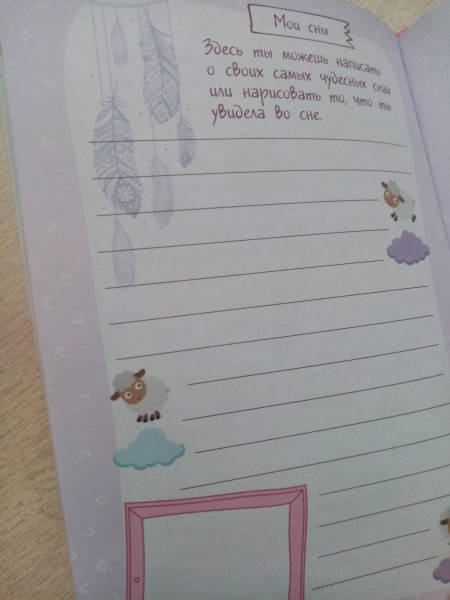 Мои сны
Здесь ты можешь написать
о своих самых чудесных снах
или нарисовать то, что ты
увидела во сне.